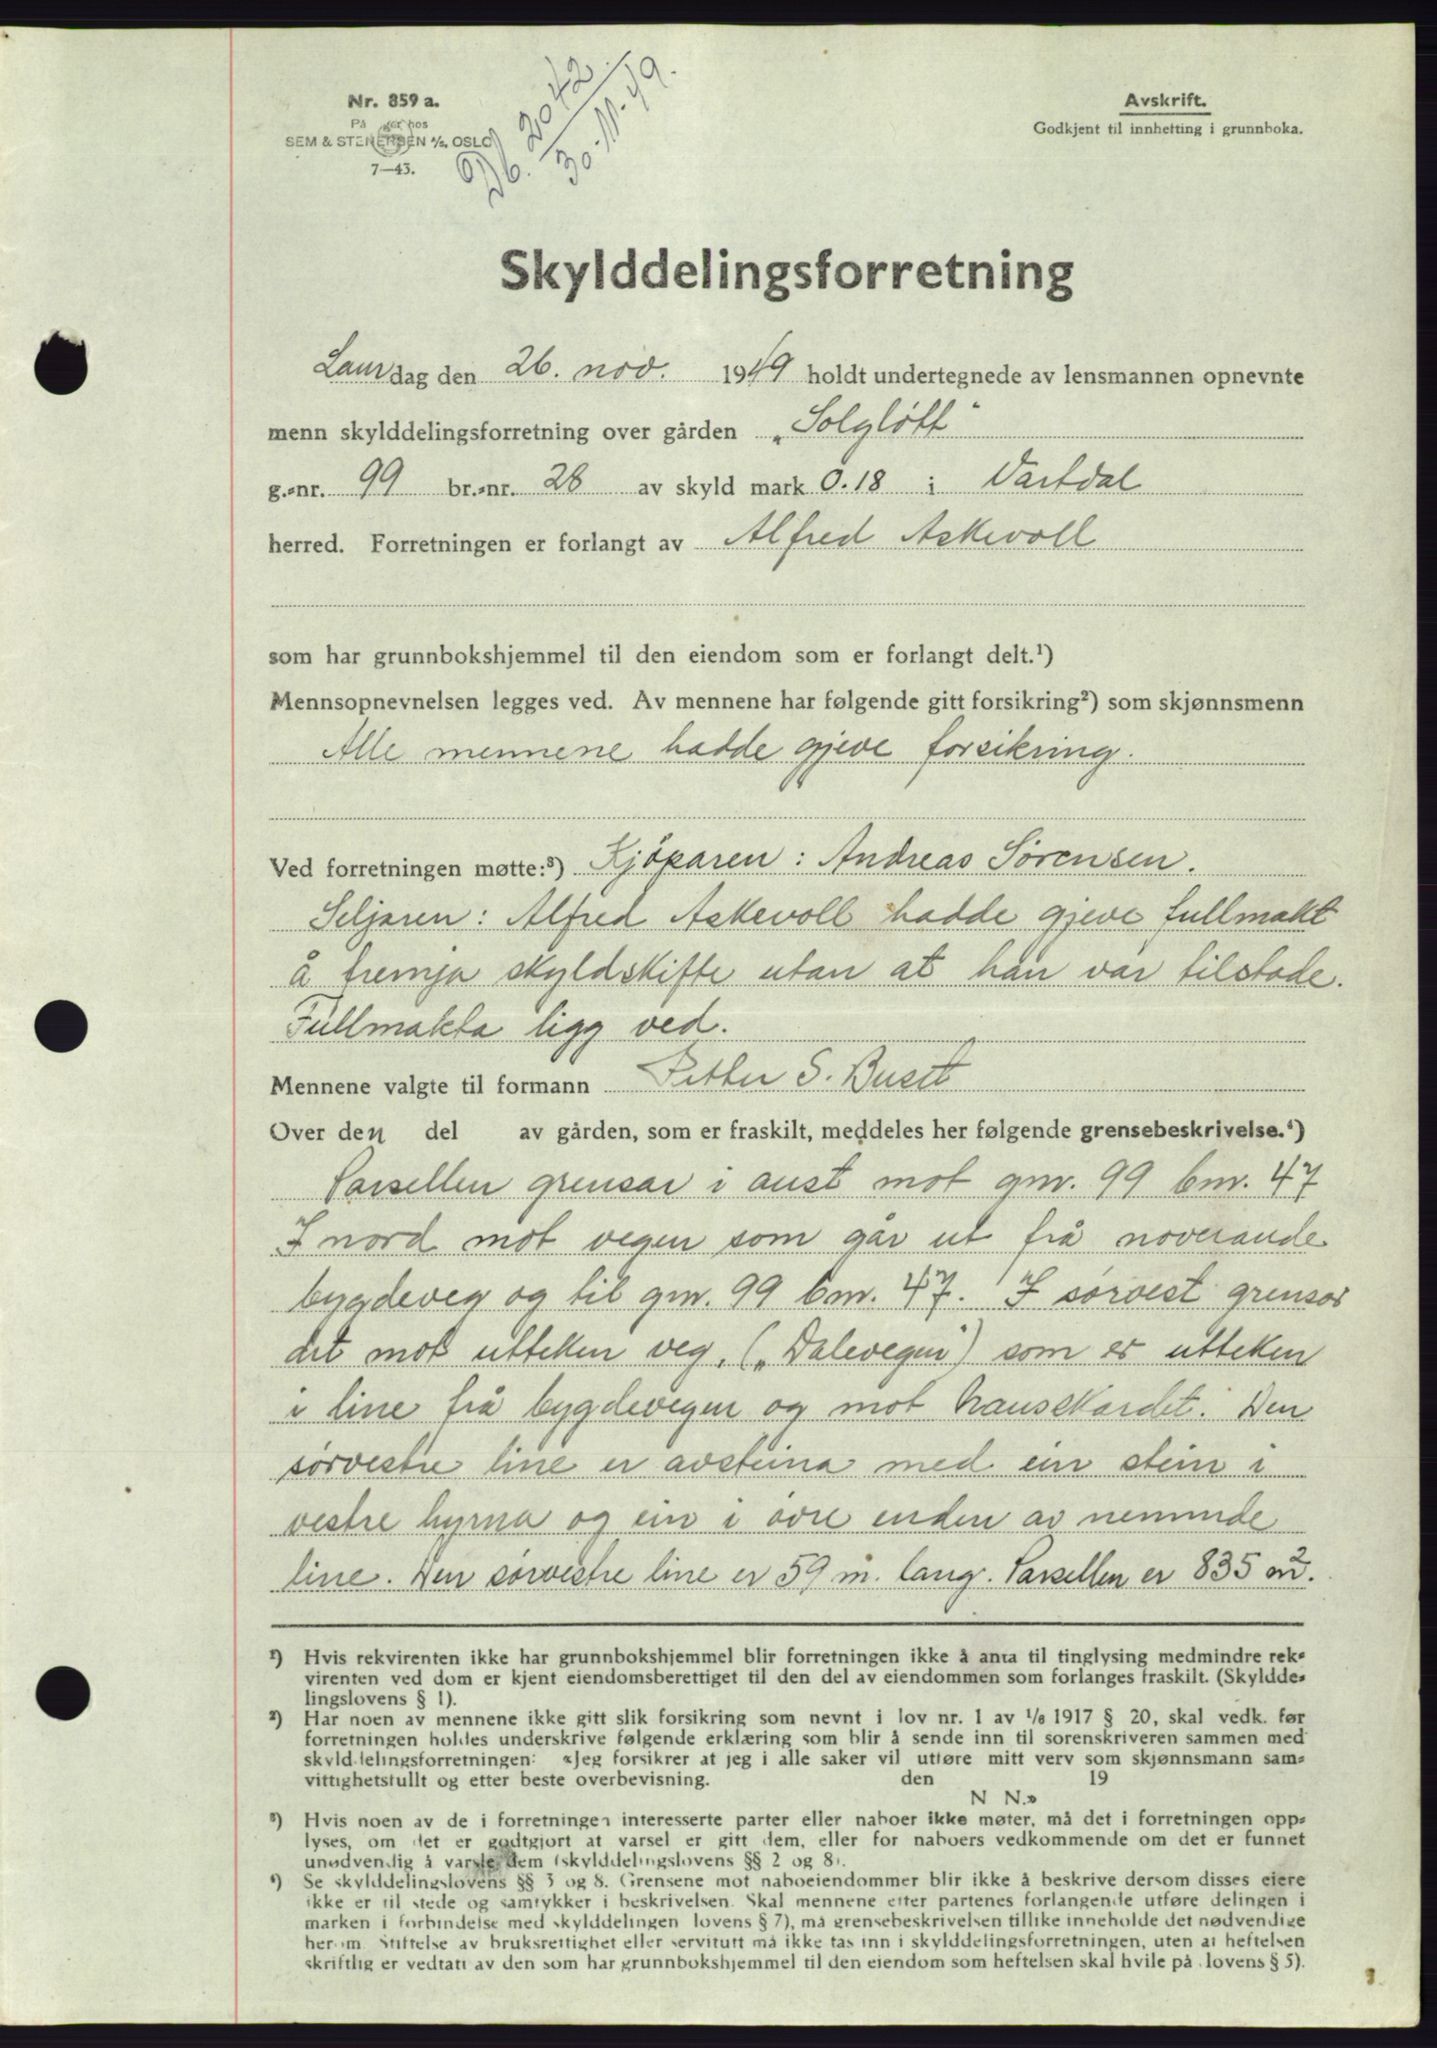 Nr. 859 a.
På ger hos
SEM & STENERSEN A/S, OSLO
7—43.
Db. 2042
30-11-49.
Avskrift.
Godkjent til innhefting i grunnboka.
Skylddelingsforretning
Laurdag den 26. nov. 1949 holdt undertegnede av lensmannen opnevnte
menn skylddelingsforretning over gården „Solgløtt"
g.-nr. 99 br.-nr. 28 av skyld mark 0.18 i Vartdal
herred. Forretningen er forlangt av Alfred Askevoll
som har grunnbokshjemmel til den eiendom som er forlangt delt.¹)
Mennsopnevnelsen legges ved. Av mennene har følgende gitt forsikring²) som skjønnsmenn
Alle mennene hadde gjeve forsikring.
Ved forretningen møtte:³) Kjöparen: Andreas Sørensen.
Seljaren: Alfred Askevoll hadde gjeve fullmakt
å fremja skyldskifte utan at han var tilstade.
Fullmakta ligg ved.
Mennene valgte til formann Petter S. Buset
Over den del av gården, som er fraskilt, meddeles her følgende grensebeskrivelse.⁴)
Parsellen grensar i aust mot gnr. 99 bnr. 47
I nord mot vegen som går ut frå noverande
bygdeveg og til gnr. 99 bnr. 47. I sørvest grensar
det mot utteken veg, („Dalevegen") som er utteken
i line frå bygdevegen og mot Nausskardet. Den
sørvestre line er avsteina med ein stein i
vestre hyrna og ein i øvre enden av nemnde
line. Den sørvestre line er 59 m. lang. Parsellen er 835 m².
¹) Hvis rekvirenten ikke har grunnbokshjemmel blir forretningen ikke å anta til tinglysing medmindre rek-
virenten ved dom er kjent eiendomsberettiget til den del av eiendommen som forlanges fraskilt. (Skyldde-
lingslovens § 1).
²) Har noen av mennene ikke gitt slik forsikring som nevnt i lov nr. 1 av 1/6 1917 § 20, skal vedk. før
forretningen holdes underskrive følgende erklæring som blir å sende inn til sorenskriveren sammen med
skylddelingsforretningen: «Jeg forsikrer at jeg i alle saker vil utføre mitt verv som skjønnsmann sam-
vittighetsfullt og etter beste overbevisning. den 19
N N.»
³) Hvis noen av de i forretningen interesserte parter eller naboer ikke møter, må det i forretningen opp-
lyses, om det er godtgjort at varsel er gitt dem, eller for naboers vedkommende om det er funnet
unødvendig å varsle dem (skylddelingslovens §§ 2 og 8).
⁴) Se skylddelingslovens §§ 3 og 8. Grensene mot naboeiendommer blir ikke å beskrive dersom disses eiere
ikke er til stede og samtykker i beskrivelsen. Skal mennene etter partenes forlangende utføre delingen i
marken i forbindelse med skylddelingen lovens § 7), må grensebeskrivelsen tillike inneholde det nødvendige
herom. Stiftelse av bruksrettighet eller servitutt må ikke tas inn i skylddelingsforretningen, uten at heftelsen
skriftlig er vedtatt av den som har grunnbokshjemmel til den eiendom som heftelsen skal hvile på lovens § 5).